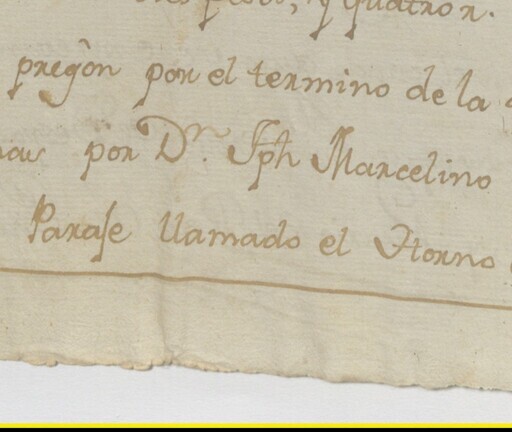 y quatro r.
pregôn por el termino de la
por Dn. Jph Marcelino
Paraje llamado el Horno